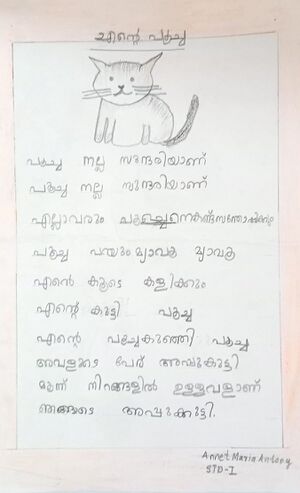 എന്റെ പൂച്ച
പൂച്ച നല്ല സുന്ദരിയാണ്
പൂച്ച നല്ല സുന്ദരിയാണ്
എല്ലാവരും
പൂച്ച പറയും മ്യാവൂ മ്യാവൂ
എൻെ കൂടെ കളിക്കും
എന്റെ കുട്ടി പൂച്ച
എന്റെ പൂച്ചകുഞ്ഞി പൂച്ച
അവളുടെ പേര് അപ്പുകുട്ടി
മൂന്ന് നിറങ്ങളിൽ ഉള്ളവളാണ്
ഞങ്ങടെ അപ്പുക്കുട്ടി.
Annet Maria Antony
STD-I